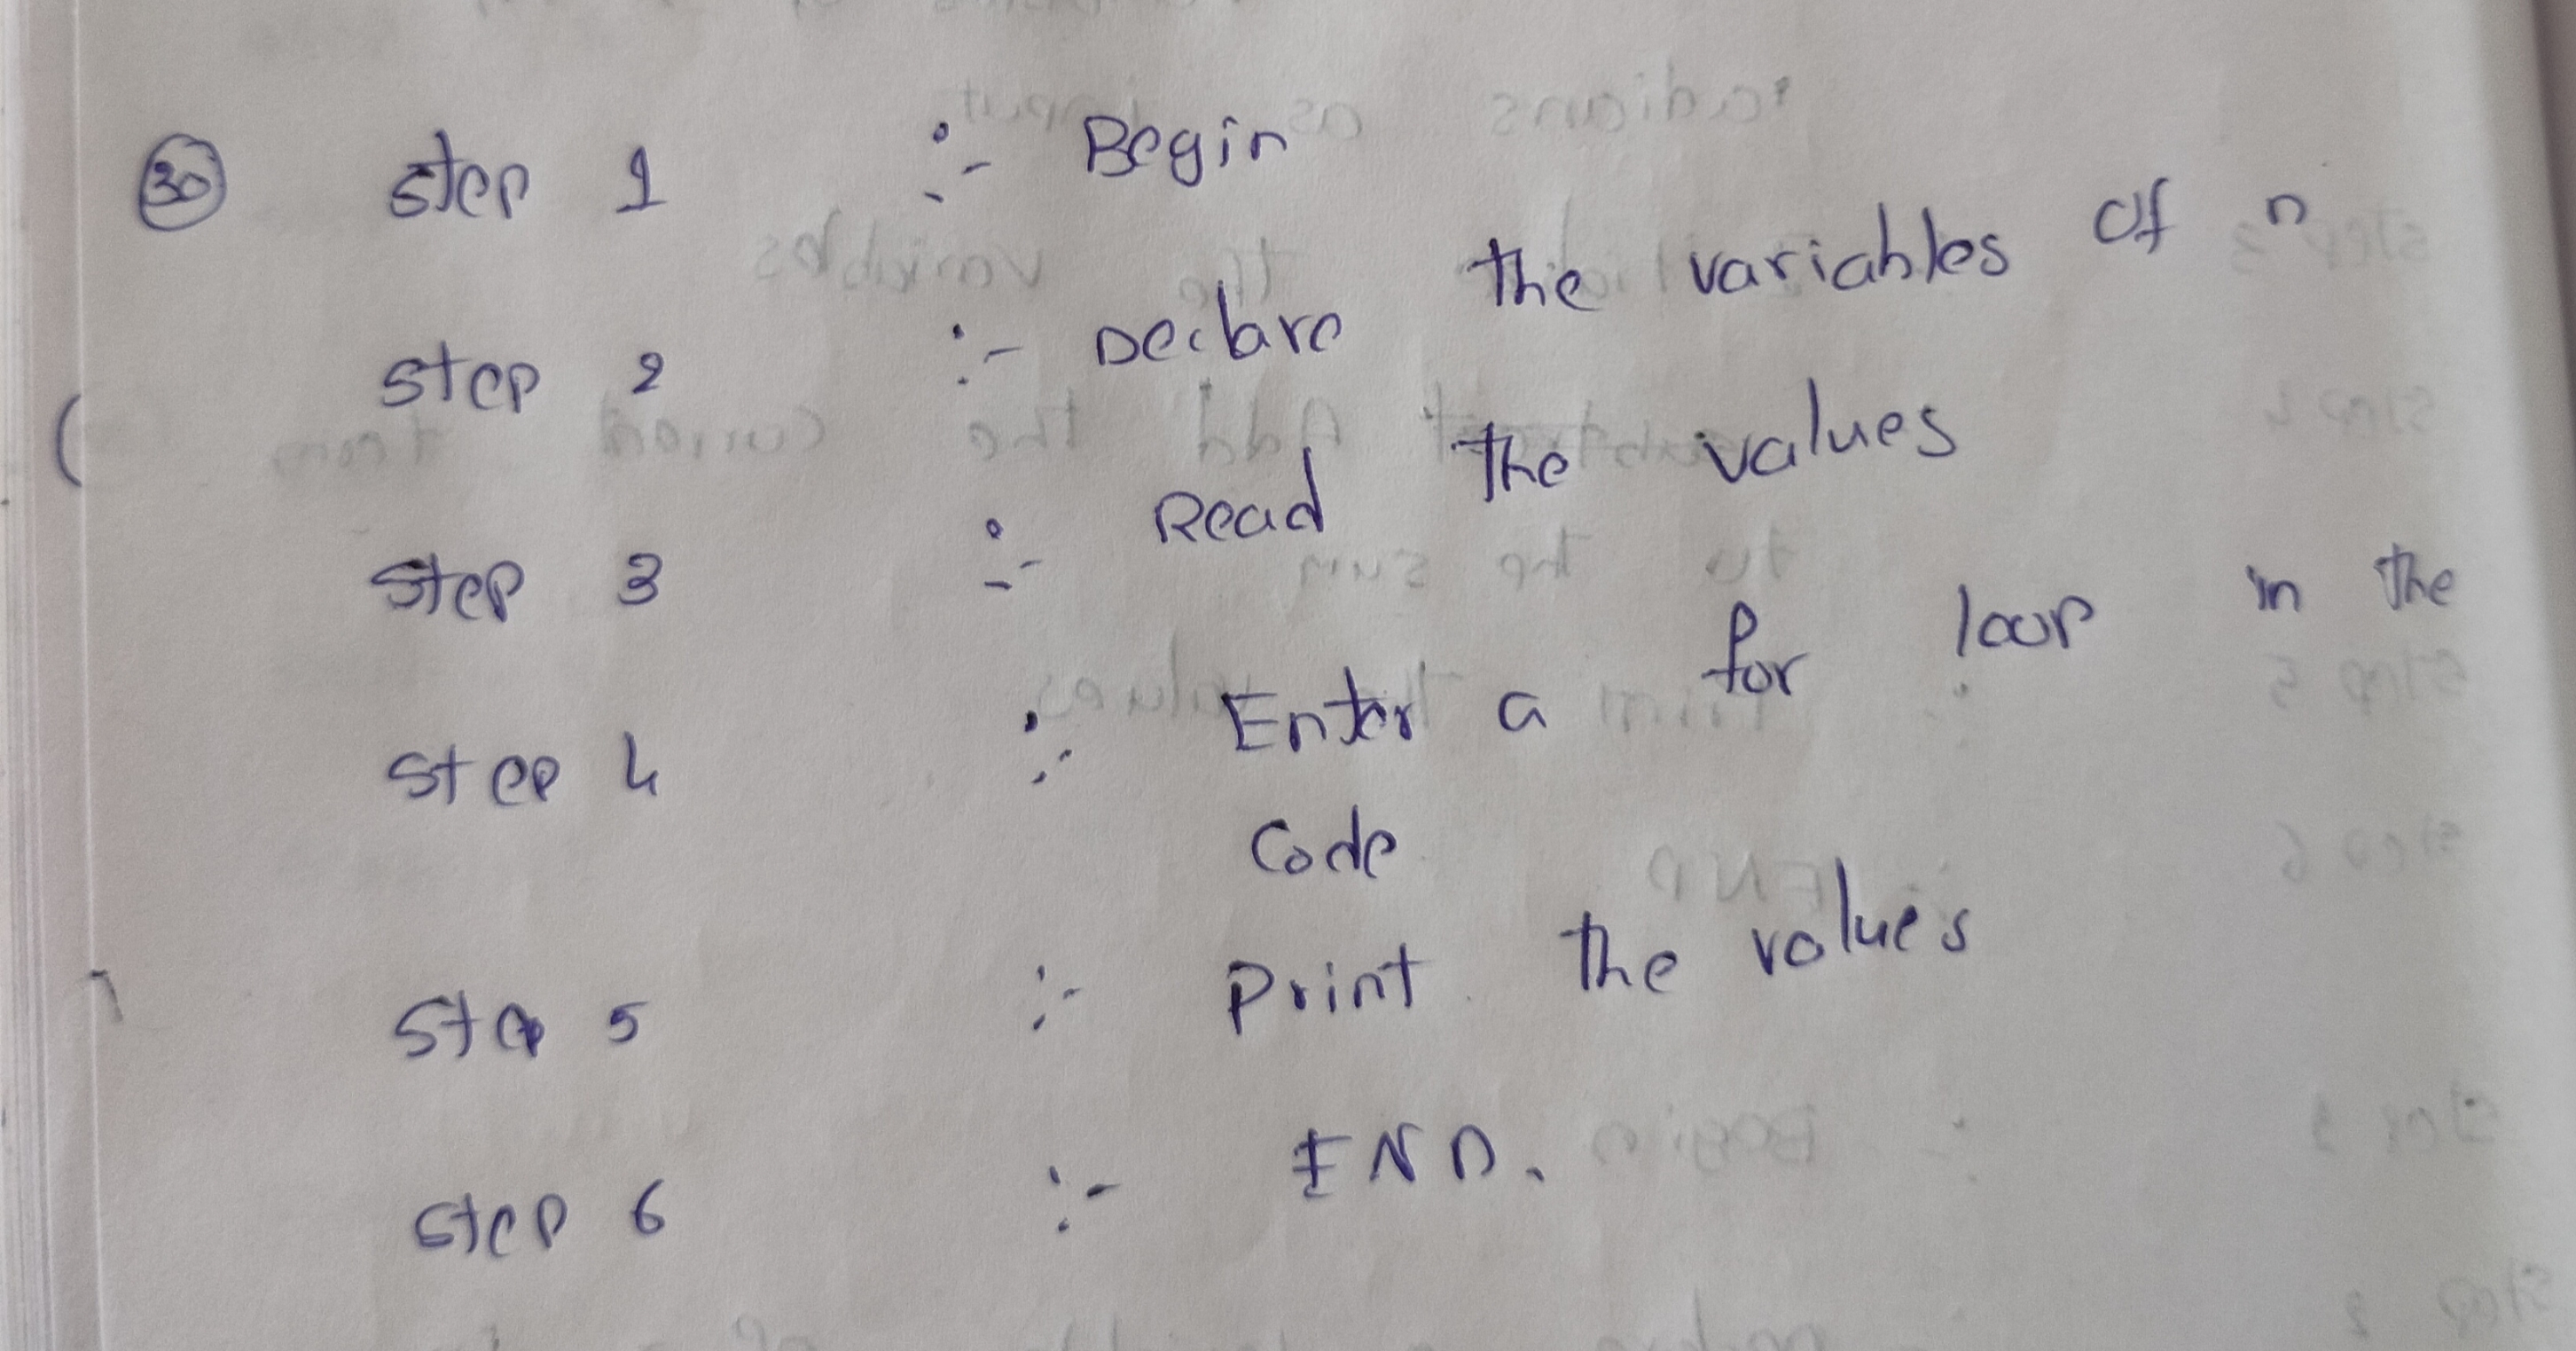 30 Step 1 :- Begin
Step 2 :- Declare the variables of n
Step 3 :- Read the values
Step 4 :- Enter a for loop in the
Code
Step 5 :- Print the values
Step 6 :- END.